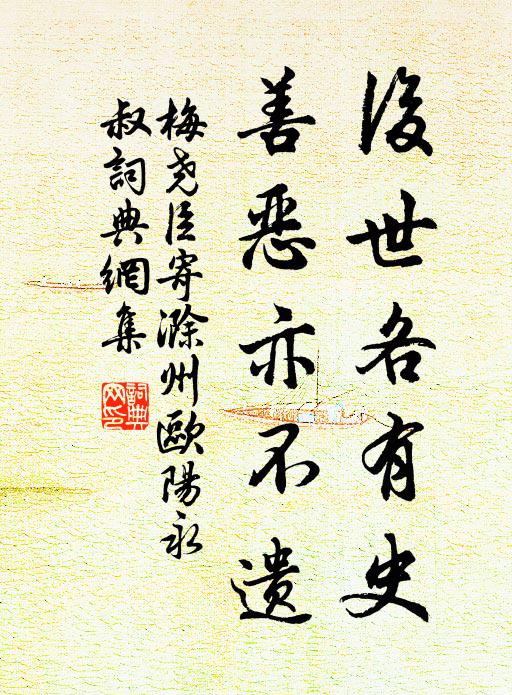 後世各有史
善惡亦不遺
梅尧臣寄滁州歐陽永
叔詞典網集
詞典
网印